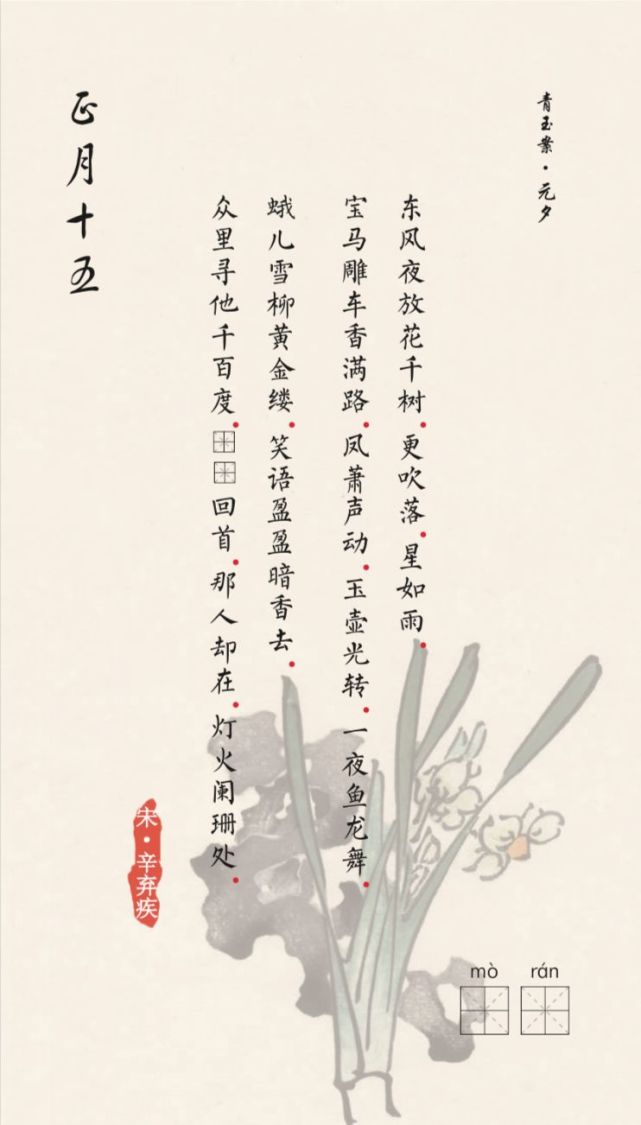 青玉案·元夕
东风夜放花千树.更吹落.星如雨.
宝马雕车香满路.凤萧声动.玉壶光转.一夜鱼龙舞.
蛾儿雪柳黄金缕.笑语盈盈暗香去.
众里寻他千百度.回首.那人却在.灯火阑珊处.
宋·辛弃疾
正月十五
mò rán